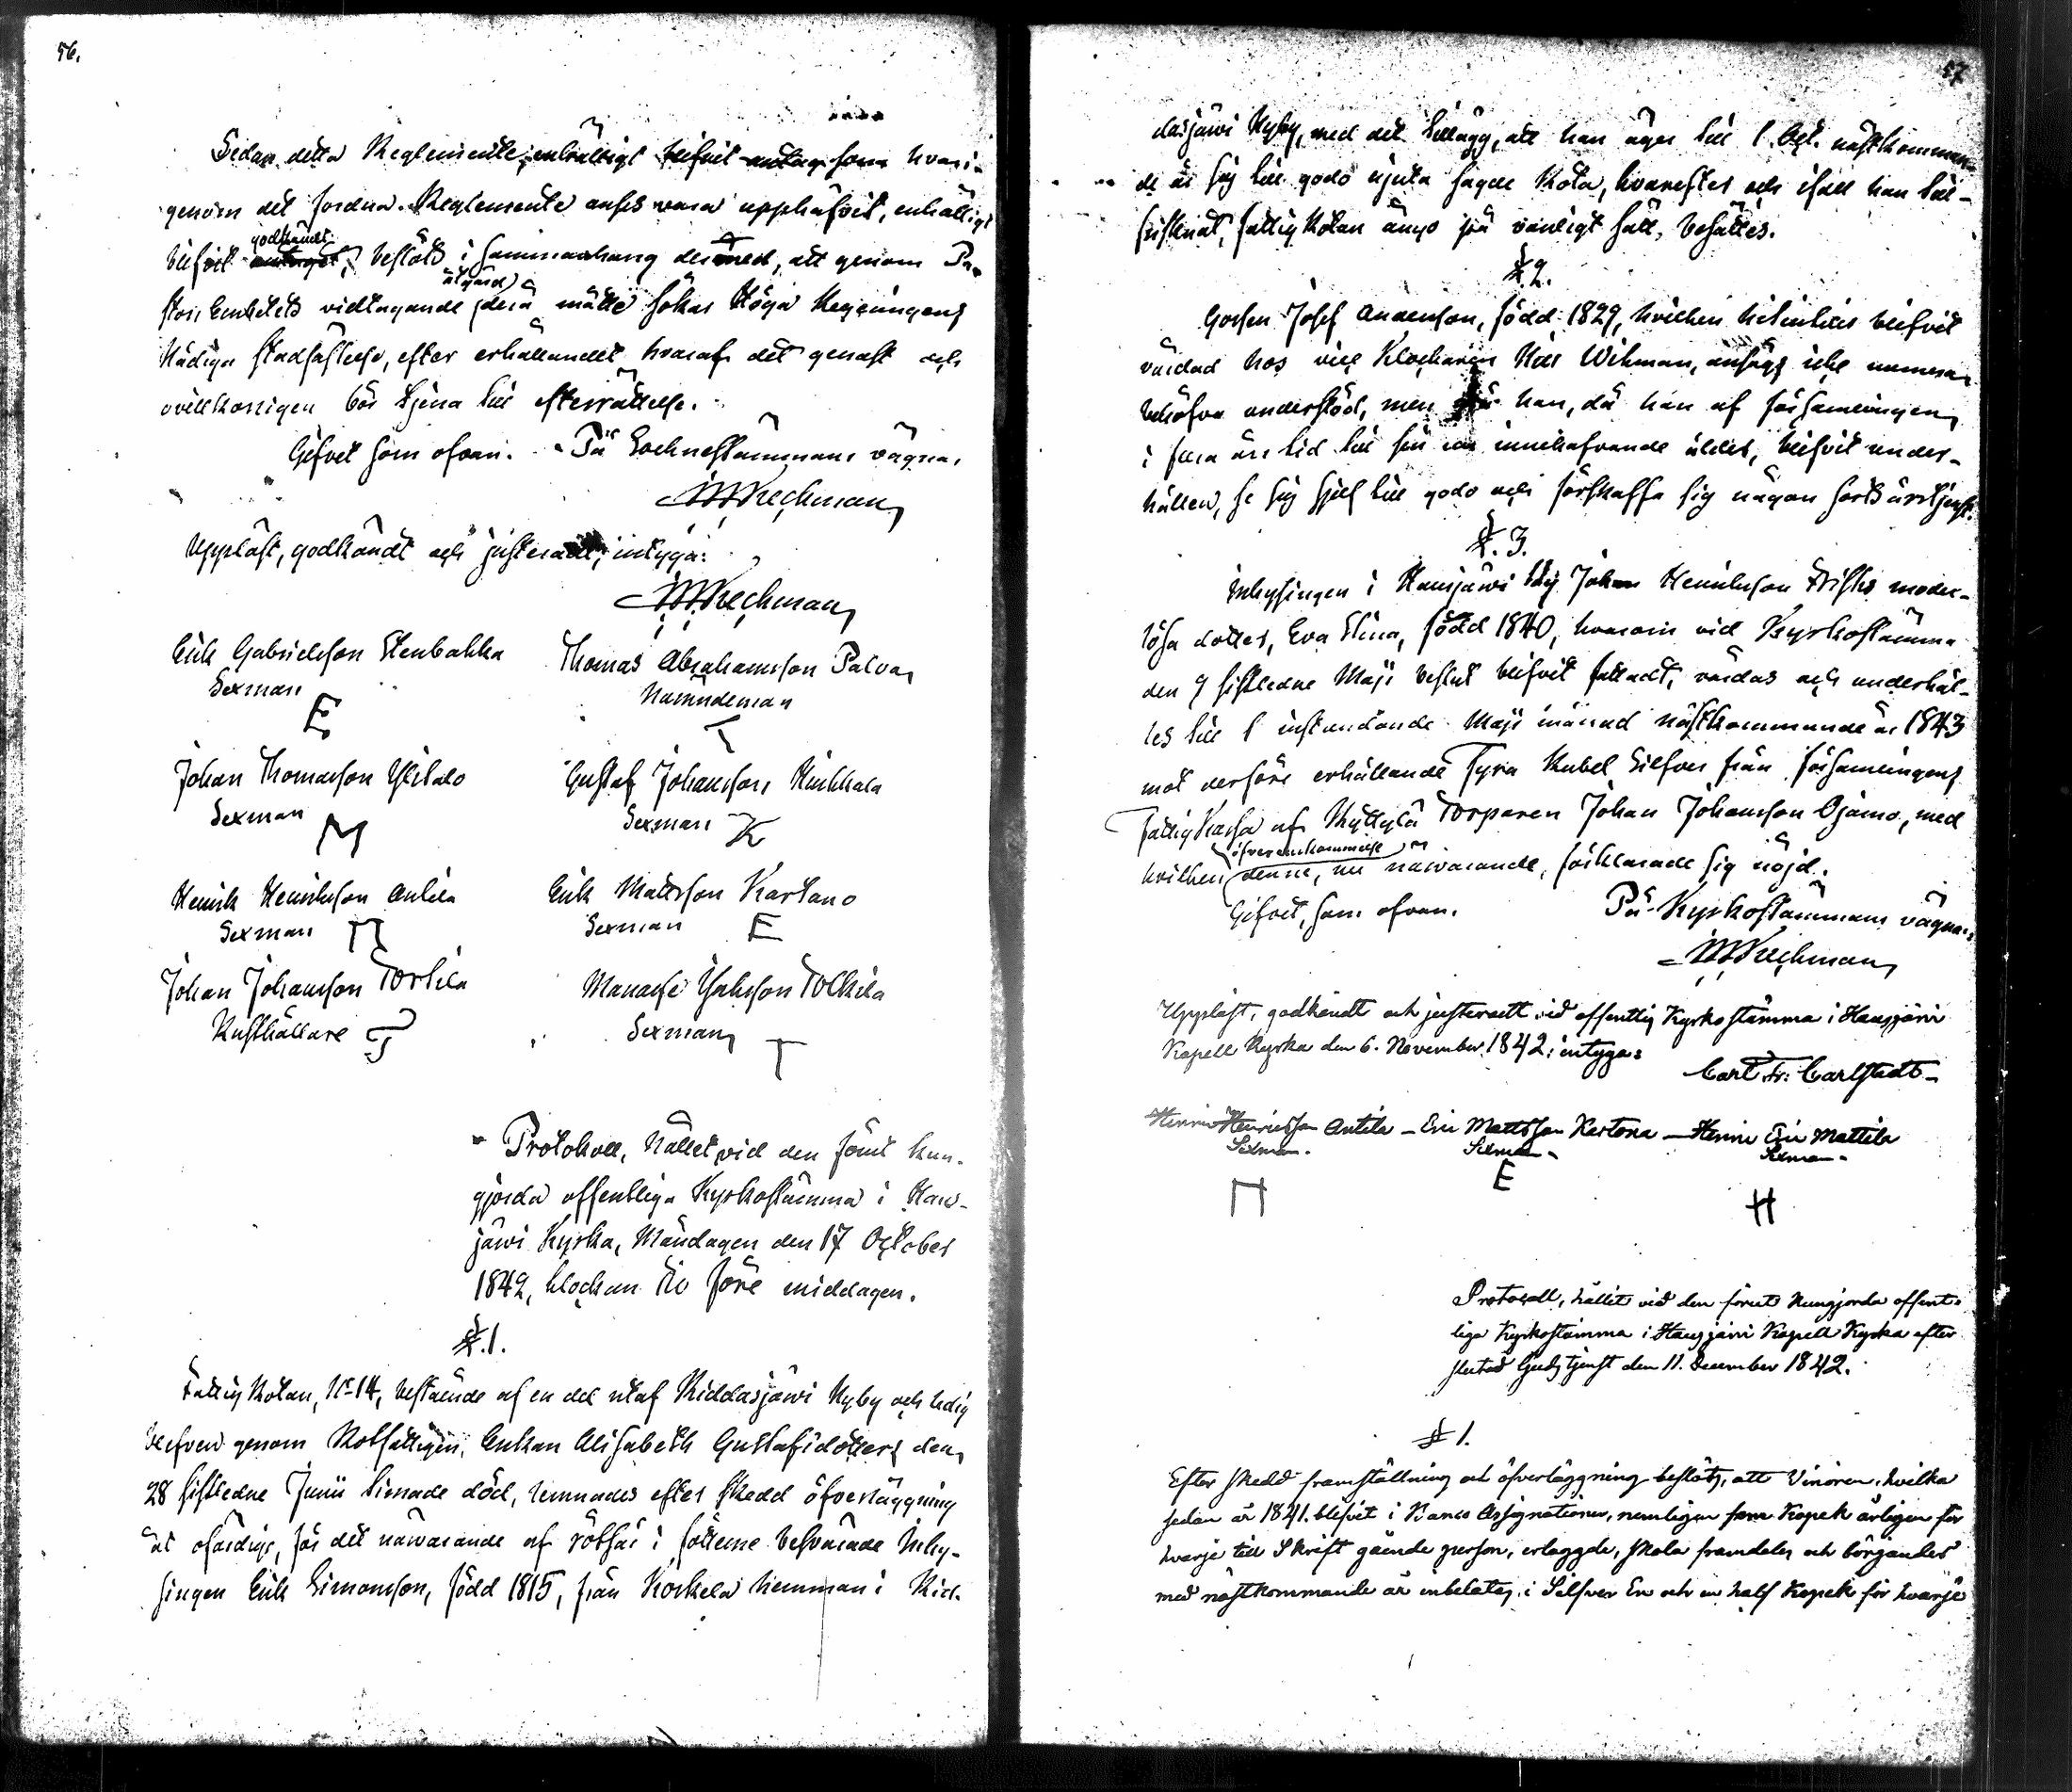 56.
Sedan detta Reglemente, enhälligt blifvit antag som hvari-
genom det fordna Reglemente anses vara upphäfvit, enhälligt
godkändt
blifvit antaget, beslöts i sammanhang dermed, att genom Pa-
åtgärd
stors Embetets vidtagande dera måtte sökas Höga Regeringens
Nådiga stadfästelse, efter erhållandet hvaraf det genast och
ovillkorligen bör tjena till efterrättelse.
Gifvet som ofvan. På Sochnestämmans vägnar
Uppläst, godkändt och justeradt, intyga:
Erik Gabrielsson Stenbakka Thomas Abrahamsson Palva
Sexman Nämndeman
E T
Johan Thomasson Ylitalo Gustaf Johansson Kirkkala
Sexman M Sexman K
Henrik Henriksson Anlila Erik Mattsson Kartano
Sexman Π Sexman E
Johan Johansson Torhila Manasse Tolkila
Rusthållare J Sexman T
Protokoll, hållet vid den förut kun-
gjorda offentliga Kyrkostämma i Haus-
järwi Kyrka, Måndagen den 17 October
1842, klockan Tio före middagen.
§.1.
Fattig Rotan, No 14, bestående af en del utaf Riddasjärwi Nyby och ledig
blefven genom Rotfattigen, Enkan Elisabeth Gustafsdotters den
28 sistledne Junii timade död, lemnades efter skedd öfverläggning
åt ofärdige, för det närvarande af rötsår i fötterne besvärade Inhy-
singen Erik Simonsson, född 1815, från Korkela hemman i Rid-
57
dasjärwi Nyby, med det tillägg, att han äger till 1. Oct. nästkomman-
de år sig till godo njuta sagde Rota, hvarefter och ifall han till-
frisknat, fattig Rotan ånyo på vanligt sätt, besättes.
§ 2.
Gossen Josef Anderson, född 1829, hvilken hitintills blifvit
vårdad hos vice Klockaren Nils Wikman, ansågs icke numera
behöfva understöd, men bör han, då han af församlingen
i flera års tid till sin nu innehafvande ålder, blifvit under-
hållen, se sig sjelf till godo och förskaffa sig någon sorts årstjenst.
§. 3.
Inhysingen i Hausjärwi by Johan Henriksson Frisks moder-
lösa dotter, Eva Stina, född 1840, hvarom vid Kyrkostämma
den 9 sistledne Maji beslut blifvit fattadt, vårdas och underhål-
les till 1 instundande Maji månad nästkommande år 1843
mot derföre erhållande Fyra Rubel Silfver från församlingens
fattig Kassa af Ryttylä Torparen Johan Johansson Ojamo, med
öfverenskommelse
hvilken denne, nu närvarande, förklarade sig nöjd.
Gifvet, som ofvan. På Kyrkostämmans vägnar:
Uppläst, godkändt och justeradt vid offentlig Kyrkostämma i Hausjärvi
Kapell Kyrka den 6. November 1842, intyga:
Carl Fr: Carlstedt
Henric Henricsson Antila — Eric Mattsson Kartona — Henric Eric Mattila
Sexman. Sexman. Sexman.
Π E H
Protocoll, hållit vid den förut kungjorda offent-
liga Kyrkostämma i Hausjärvi Kapell Kyrka efter
slutad Gudstjenst den 11. December 1842.
§ 1.
Efter skedd framställning och öfverläggning beslöts, att Vinören, hvilka
sedan år 1841. blifvit i Banco Assignationer, nemligen fem Kopek årligen för
hvarje till Skrift gående person, erlaggde, skola framdeles och börjandes
med nästkommande år inbetalas i Silfver En och en half Kopek för hvarje